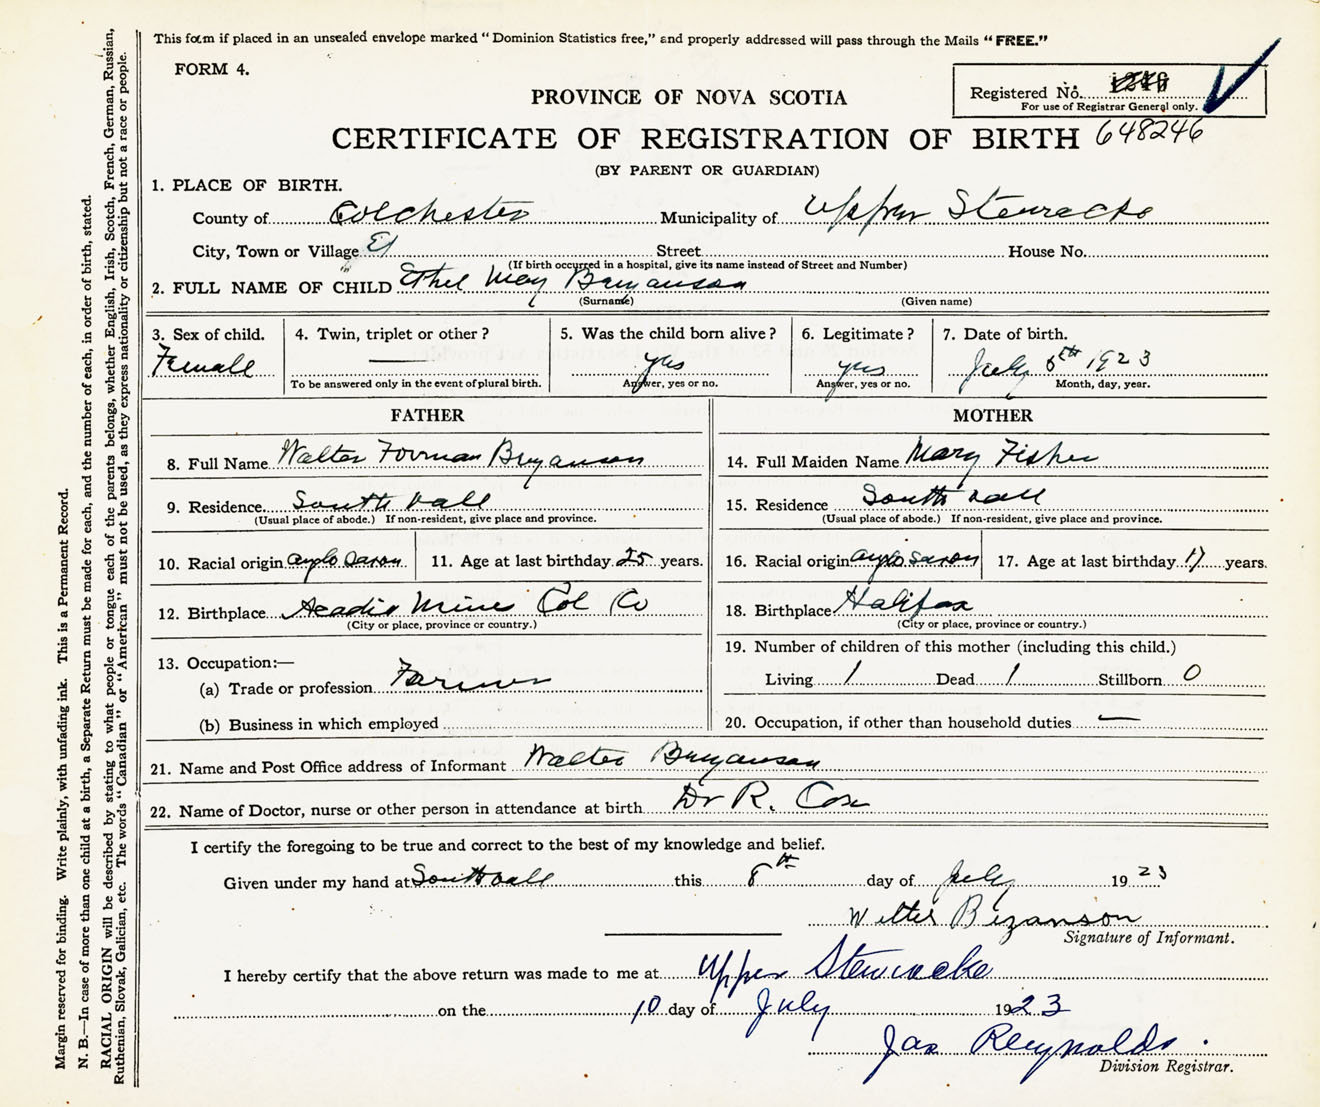 This form if placed in an unsealed envelope marked "Dominion Statistics free," and properly addressed will pass through the Mails "FREE."
FORM 4.
Registered No.
For use of Registrar General only.
PROVINCE OF NOVA SCOTIA
CERTIFICATE OF REGISTRATION OF BIRTH 648246
(BY PARENT OR GUARDIAN)
1. PLACE OF BIRTH.
County of Colchester Municipality of Upper Stewiacke
City, Town or Village Street House No.
(If birth occurred in a hospital, give its name instead of Street and Number)
2. FULL NAME OF CHILD Ethel May Bryanson
(Surname) (Given name)
3. Sex of child. 4. Twin, triplet or other? 5. Was the child born alive? 6. Legitimate? 7. Date of birth.
Female — yes yes July 8th 1923
To be answered only in the event of plural birth. Answer, yes or no. Answer, yes or no. Month, day, year.
FATHER
8. Full Name Walter Forman Bryanson
9. Residence. South vall
(Usual place of abode.) If non-resident, give place and province.
10. Racial origin anglo saxon 11. Age at last birthday 25 years.
12. Birthplace Acadia Mines Col Co
(City or place, province or country.)
13. Occupation:—
(a) Trade or profession Farmer
(b) Business in which employed
MOTHER
14. Full Maiden Name Mary Fisher
15. Residence South vall
(Usual place of abode.) If non-resident, give place and province.
16. Racial origin anglo saxon 17. Age at last birthday 17 years.
18. Birthplace Halifax
(City or place, province or country.)
19. Number of children of this mother (including this child.)
Living 1 Dead 1 Stillborn 0
20. Occupation, if other than household duties —
21. Name and Post Office address of Informant Walter Bryanson
22. Name of Doctor, nurse or other person in attendance at birth Dr R. Cox
I certify the foregoing to be true and correct to the best of my knowledge and belief.
Given under my hand at Southvall this 8th day of July 1923
Walter Bezanson
Signature of Informant.
I hereby certify that the above return was made to me at Upper Stewiacke
on the 10 day of July 1923
Jas Reynolds.
Division Registrar.
Margin reserved for binding. Write plainly, with unfading ink. This is Permanent Record.
N. B.—In case of more than one child at a birth, a Separate Return must be made for each, and the number of each, in order of birth, stated.
RACIAL ORIGIN will be described by stating to what people or tongue each of the parents belongs, whether English, Irish, Scotch, French, German, Russian,
Ruthenian, Slovak, Galician, etc. The words "Canadian" or "American" must not be used, as they express nationality or citizenship but not a race or people.